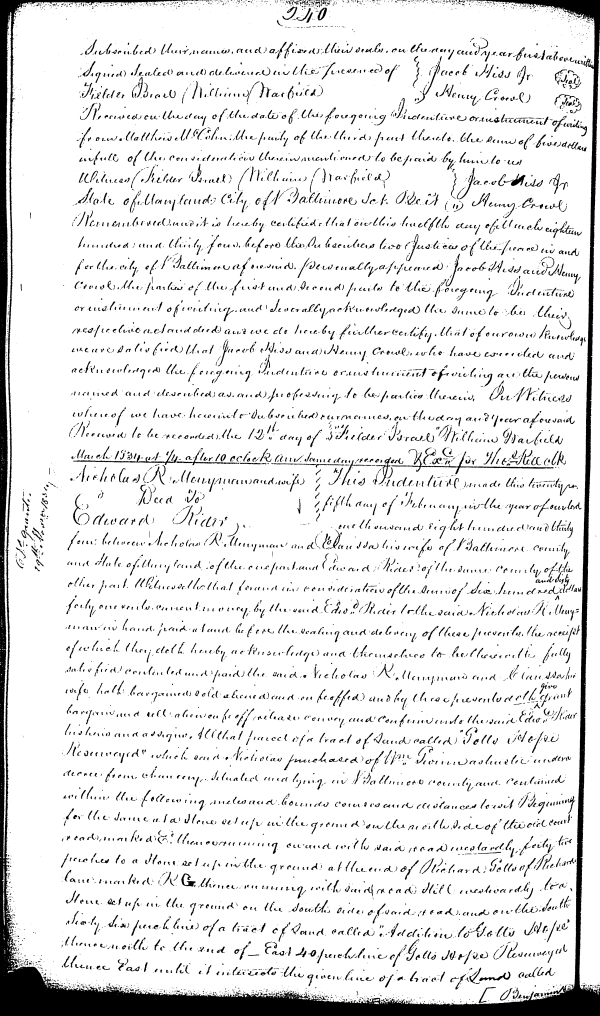 240
Subscribed their names, and affixed their seals, on the day and year first above written
Signed Sealed and delivered in the presence of } Jacob Hiss Jr (Seal)
Fielder Israel William Warfield } Henry Crowl (Seal)
Received on the day of the date of the foregoing Indenture or instrument of writing
from Matthew the party of the third part thereto the sum of five dollars
in full of the consideration therein mentioned to be paid by him to us
Witness Fielder Israel William Warfield } Jacob Hiss Jr
State of Maryland City of Baltimore Sct. Be it } Henry Crowl
Remembered and it is hereby certified that on this twelfth day of March eighteen
hundred and thirty four before the Subscribers two Justices of the peace in and
for the city of Baltimore aforesaid personally appeared Jacob Hiss and Henry
Crowl the parties of the first and second parts to the foregoing Indenture
or instrument of writing and Severally acknowledged the same to be their
respective act and deed and we do hereby further certify that of our own knowledge
we are satisfied that Jacob Hiss and Henry Crowl who have executed and
acknowledged the foregoing Indenture or instrument of writing are the persons
named and described as and professing to be parties therein. In Witness
whereof we have hereunto Subscribed our names, on the day and year aforesaid
Received to be recorded the 12th day of } Fielder Israel William Warfield
March 1834 at after 10 oclock am same day recorded & Exd pr
Nicholas R Merryman and wife } This Indenture made this twenty
Deed To } fifth day of February in the year of our lord
Edward Rider } one thousand eight hundred and thirty
four between Nicholas R. Merryman and Clarissa his wife of Baltimore county
and State of Maryland of the one part and Edward Rider of the same county of the
other part. Witnesseth that for and in consideration of the sum of Six hundred and sixty dollars
forty one cents current money by the said Edwd. Rider to the said Nicholas R Merry=
man in hand paid at and before the sealing and delivery of these presents the receipt
of which they doth hereby acknowledge and themselves to be therewith fully
satisfied contented and paid the said Nicholas R Merryman and Clarissa his
wife hath bargained sold aliened and enfeoffed and by these presents doth give grant
bargain and sell alien enfeoff release convey and confirm unto the said Edwd. Rider
his heirs and assigns. All that parcel of a tract of Land called "Gotts Hope
Resurveyed" which said Nicholas purchased of Wm. Gwinn as trustee under a
decree from chancery situated and lying in Baltimore county and contained
within the following metes and bounds courses and distances to wit Beginning
for the same at a Stone set up in the ground on the north side of the old court
road marked thence running on and with said road westwardly forty two
perches to a Stone set up in the ground at the end of Richard Gotts of Richards
lane marked R G thence running with said road still westwardly to a
Stone set up in the ground on the south side of said road and on the South
sixty six perch line of a tract of Land called "Addition to Gotts Hope"
thence north to the end of East 40 perch line of Gotts Hope Resurveyed
thence East until it intersects the given line of a tract of Land called
[ Benjamins